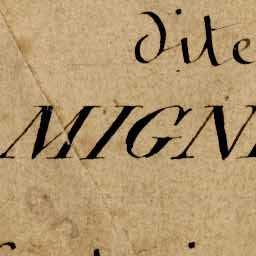 dite
MIGN